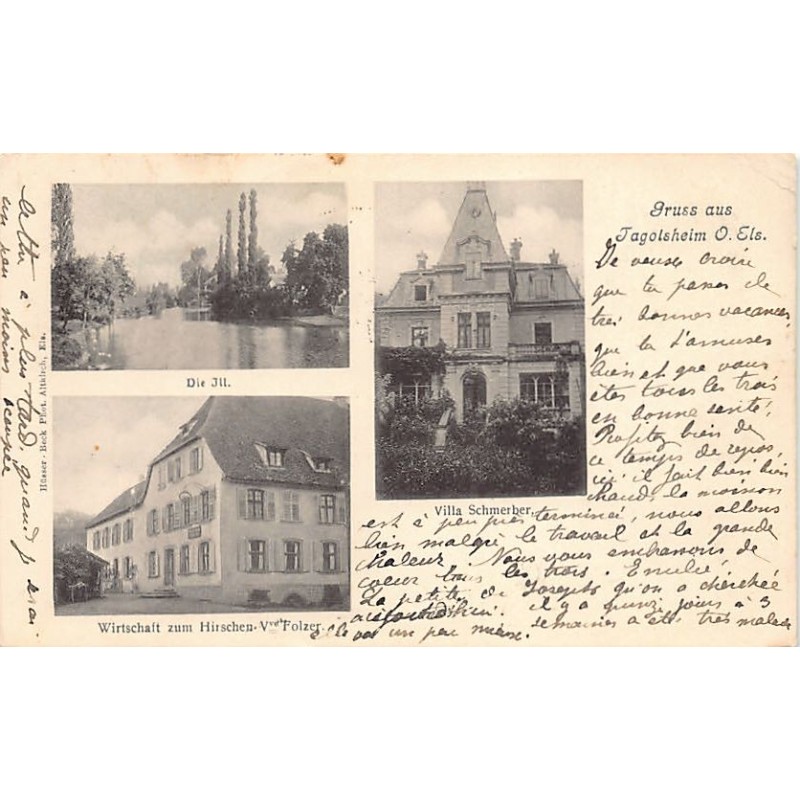 Gruss aus
Tagolsheim O. Els.
Die Ill.
Villa Schmerber.
Wirtschaft zum Hirschen. Vve Folzer.
Hüsser-Beck Phot. Altkirch, Els.
Je veux croire
que tu passes de
très bonnes vacances,
que tu t'amuses
bien et que vous
êtes tous les trois
en bonne santé,
Profitez bien de
ce temps de repos,
ici il fait bien bien
chaud, la moisson
est à peu près terminée, nous allons
bien malgré le travail et la grande
chaleur. Nous vous embrassons de
coeur tous les trois. Emélie,
La petite de Joseph qu'on a cherchée
aujourd'hui. il y a quinze jours à 3
semaines a été très malade
elle va un peu mieux.
à plus tard, quand je serai
un peu moins occupée